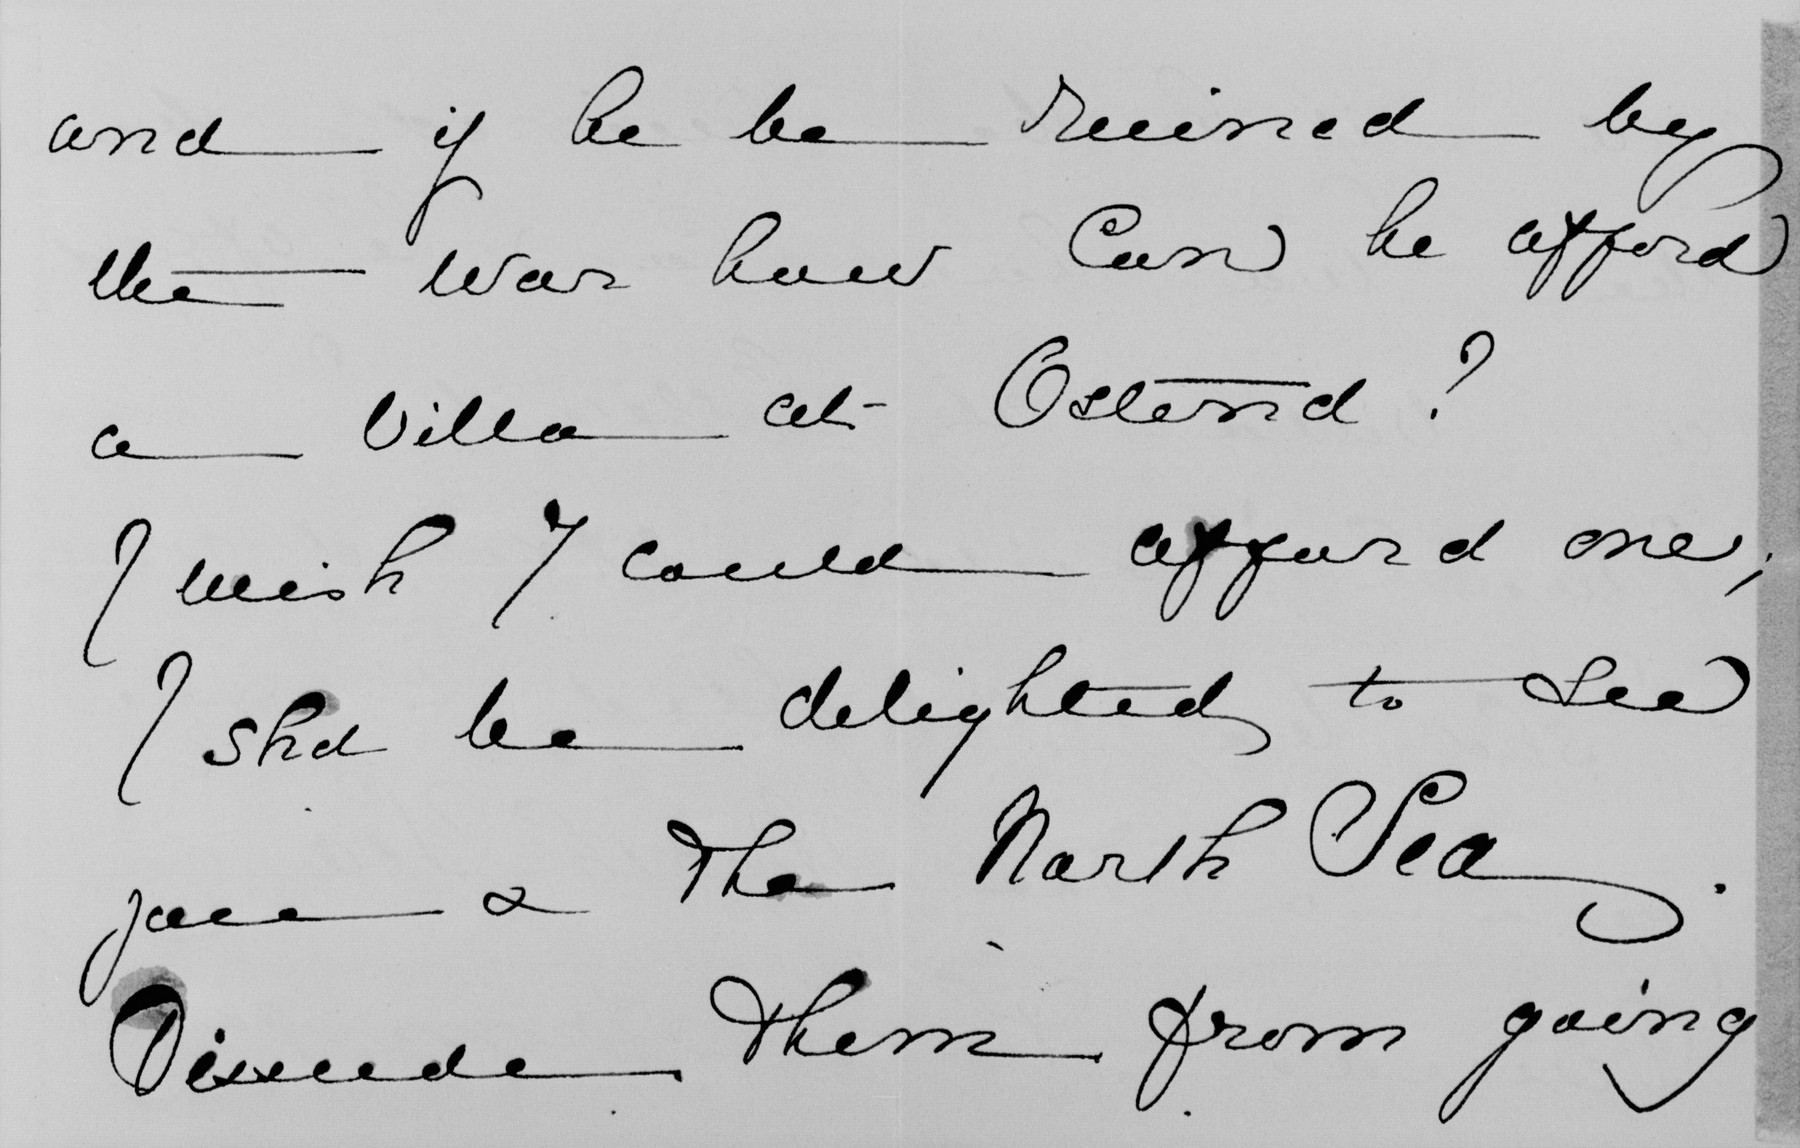 and if he be ruined by
the War how Can he afford
a Villa at Ostend?
I wish I could afford one,
I shd be delighted to see
you & the North Sea.
Dissuade them from going